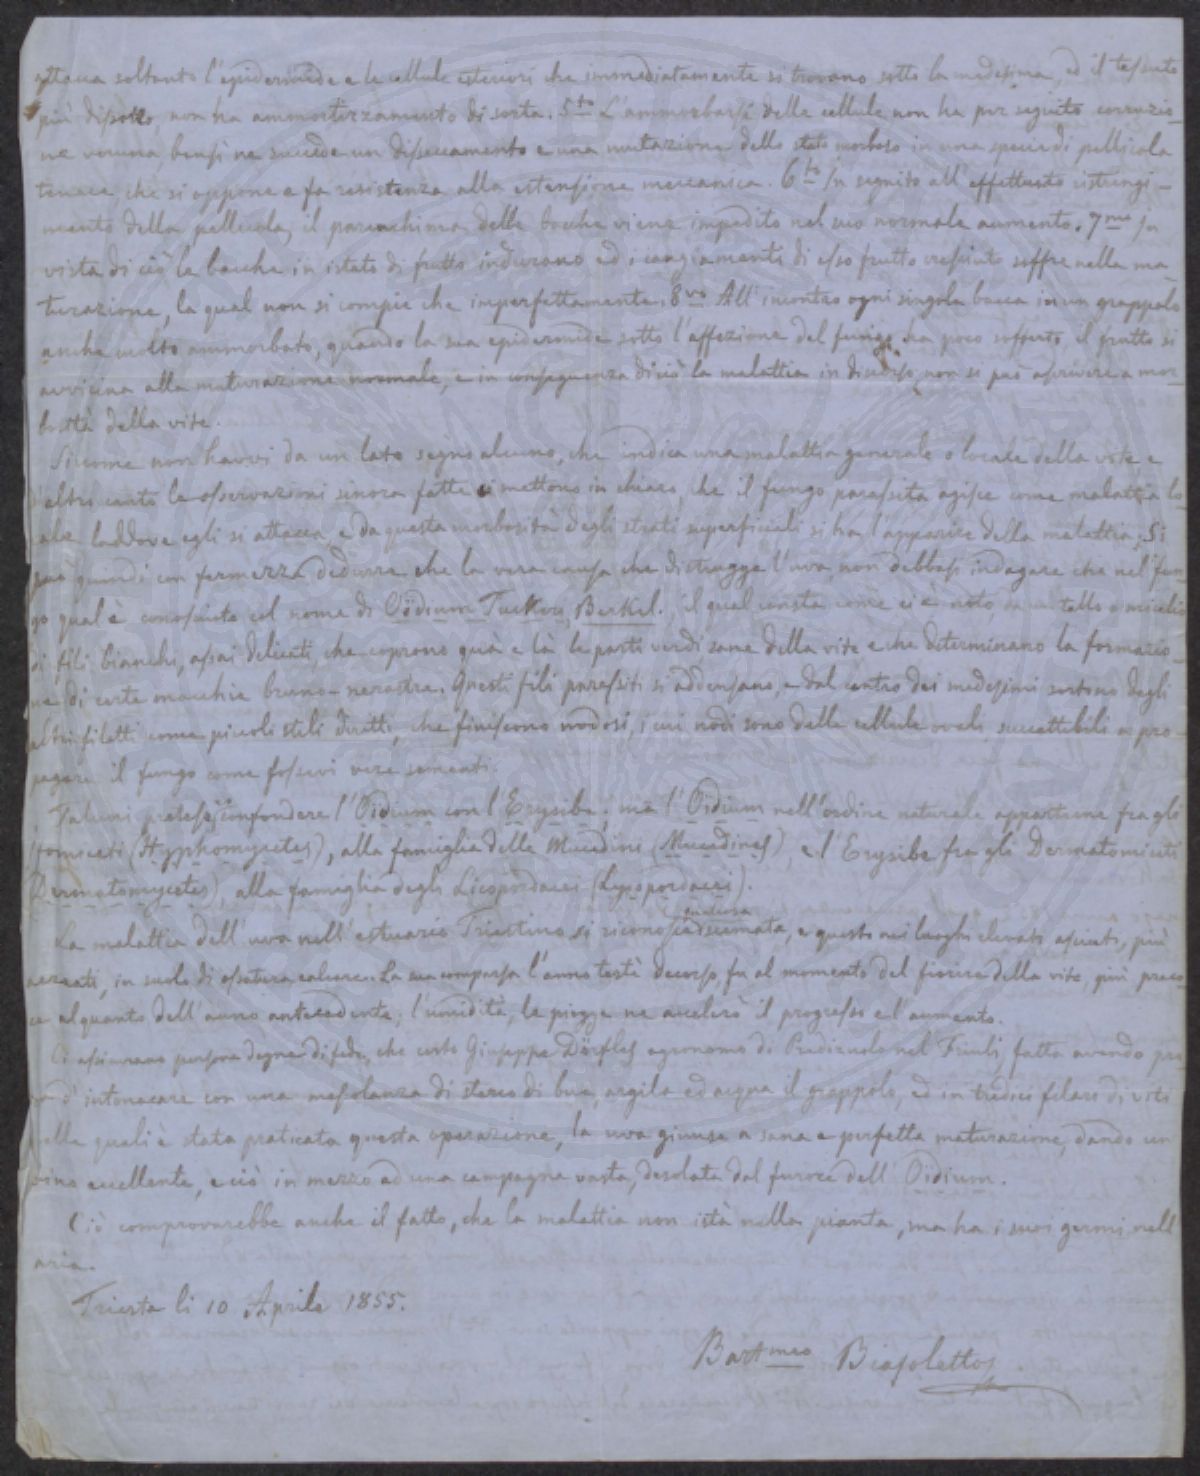 attacca soltanto l'epidermide e le cellule esteriori che immediatamente si trovano sotto la medesima, ed il tessuto
più disotto, non ha ammortizzamento di sorta. 5to L'ammorbarsi delle cellule non ha per seguito corruzio-
ne veruna, bensì ne succede un disseccamento e una mutazione dello stato morboso in una specie di pellicola
tenace, che si oppone e fa resistenza alla estensione meccanica. 6to In seguito all'effettuato ristringi-
mento della pellicola, il parenchima delle bacche viene impedito nel suo normale aumento. 7mo In
vista di ciò le bacche in istato di frutto indurano ed i cangiamenti di esso frutto cresciuto soffre nella ma-
turazione, la qual non si compie che imperfettamente. 8vo All'incontro ogni singola bacca in un grappolo
anche molto ammorbato, quando la sua epidermide sotto l'affezione del fungo ha poco sofferto, il frutto si
avvicina alla maturazione normale, e in conseguenza di ciò la malattia in discorso non si può ascrivere a mor-
bosità della vite.
Siccome non havvi da un lato segno alcuno, che indica una malattia generale o locale della vite, e
d'altro canto le osservazioni sinora fatte ci mettono in chiaro, che il fungo parassita agisce come malattia lo-
cale laddove egli si attacca, e da questa morbosità degli strati superficiali si ha l'apparire della malattia; Si
può quindi con fermezza dedurre che la vera causa che distrugge l'uva, non debbasi indagare che nel fun-
go qual è conosciuto col nome di Oïdium Tuckeri Berkel. il qual consta come ci è noto, da un tallo o micelio
di fili bianchi, assai delicati, che coprono quà e là le parti verdi sane della vite e che determinano la formazio-
ne di certe macchie bruno-nerastre. Questi fili parassiti si addensano, e dal centro dei medesimi sortono degli
altri filetti come piccoli steli diretti, che finiscono nodosi, i cui nodi sono delle cellule ovali, succettibili a pro-
pagare il fungo come fossevi vere sementi.
Taluni pretese confondere l'Oidium con l'Erysibe; ma l'Oidium nell'ordine naturale appartiene fra gli
Ifomiceti (Hyphomycetes), alla famiglia delle Mucedini (Mucedines), e l'Erysibe fra gli Dermatomiceti
(Dermatomycetes), alla famiglia degli Licopordacei (Lycopordacei).
La malattia dell'uva nell'estuario Triestino si riconosce scemata, e questo nei luoghi elevati asciutti, più
aereati, in suolo di ossatura calcare. La sua comparsa l'anno testè decorso, fu al momento del fiorire della vite, più preco-
ce alquanto dell'anno antecedente; l'umidità, le piogge ne accelerò il progresso e l'aumento.
Ci assicurano persone degne di fede, che certo Giuseppe Dörfles agronomo di Pradiziolo nel Friuli, fatta avendo pro
va d'intonacare con una mescolanza di sterco di bue, argila ed acqua il grappolo, ed in tredici filari di viti
nelle quali è stata praticata questa operazione, la uva giunse a sana e perfetta maturazione, dando un
vino eccellente, e ciò in mezzo ad una campagna vasta, desolata dal furore dell'Oidium.
Ciò comprovarebbe anche il fatto, che la malattia non istà nella pianta, ma ha i suoi germi nell'
aria.
Trieste li 10 Aprile 1855.
Bartmeo Biasoletto